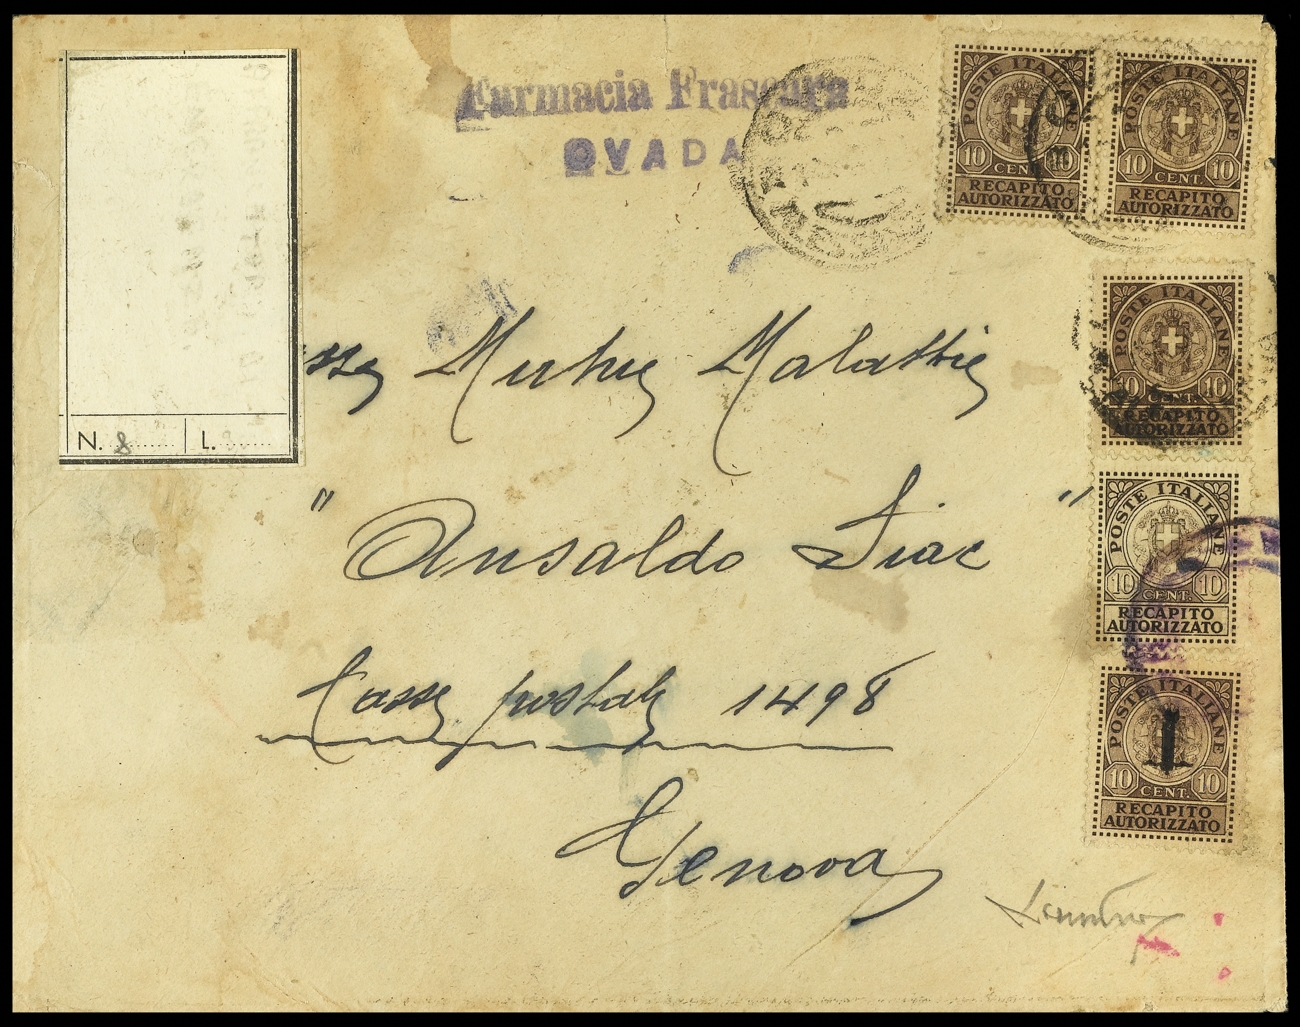 Farmacia Frascara
OVADA
Mutue Malattie
" Ansaldo Siac "
Cassa postale 1498
Genova
N. 8 L.
POSTE ITALIANE
10 CENT. 10
RECAPITO
AUTORIZZATO
POSTE ITALIANE
10 CENT. 10
RECAPITO
AUTORIZZATO
POSTE ITALIANE
10 CENT. 10
RECAPITO
AUTORIZZATO
POSTE ITALIANE
10 CENT. 10
RECAPITO
AUTORIZZATO
POSTE ITALIANE
10 CENT. 10
RECAPITO
AUTORIZZATO